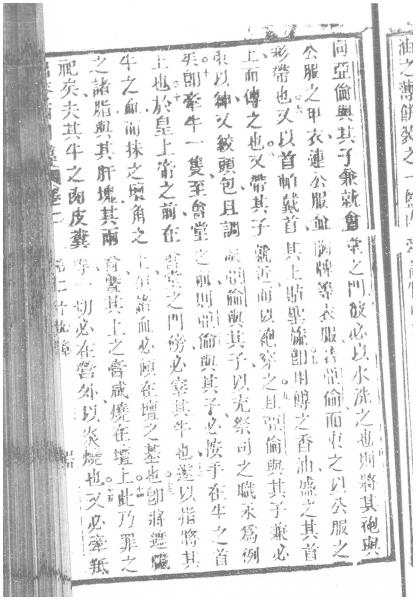 油之薄餅裝之一
向亞倫與其子兼就會堂之門彼必以水洗之也則將其袍與
公服之甲衣連公服並胸牌等衣服着亞倫而束之以公服之
彩帶也又以首帕戴首其上貼聖旒即用膊之香油盛之其首
上而傅之也又帶其子就近而以袍穿之且亞倫與其子兼必
束以紳又絞頭包且調亞倫與其子以充祭司之職永爲例
矣卽牽牛一隻至會堂之前則亞倫與其子必按手在牛之首
上也於皇上帝之前在會堂之門傍必宰其牛也遂以指將其
牛之血而抹之壇角之上餘諸血必傾在壇之基也卽將遮臟
之諸脂與其肝塊其兩腎暨其上之膏咸燒在壇上此乃罪之
祀矣夫其牛之肉皮糞等一切必在營外以炎燒也又必牽羝
卷二 第二十九章